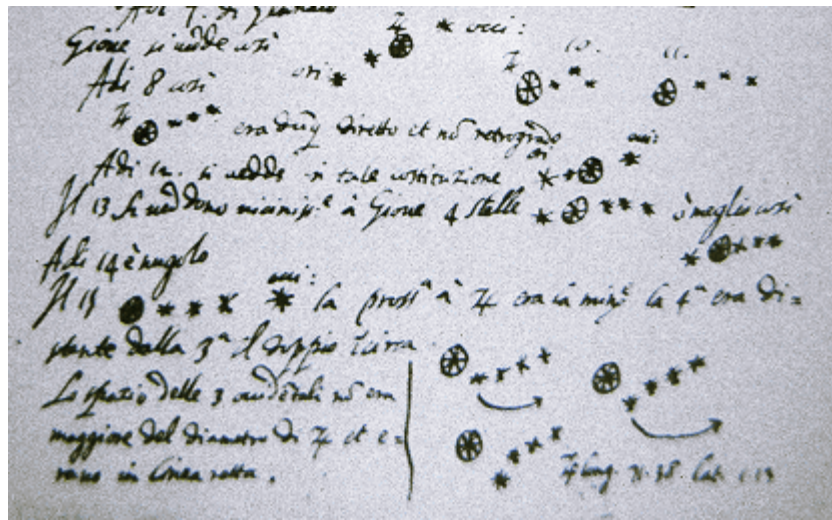 Adi 7. di Gennaio
Gione si vedde così ori: ♃ occi:
Adi 8 così ♃ 10. 11.
♃ era dūq̄ diretto et nō retrogrado
Adi 12. si vedde in tale costituzione ori occi:
Il 13 si veddono vicinissᵉ à Gione 4 stelle ò meglio così
Adi 14 è nugolo
Il 15 occi: la prossᵃ à ♃ era la minᵉ la 4ᵃ era di=
stante dalla 3ᵃ il doppio circa
Lo spazio delle 3 occidētali nō era
maggiore del diametro di ♃ et e=
rano in linea retta.
♃ long. 71.38 lat. 1.13